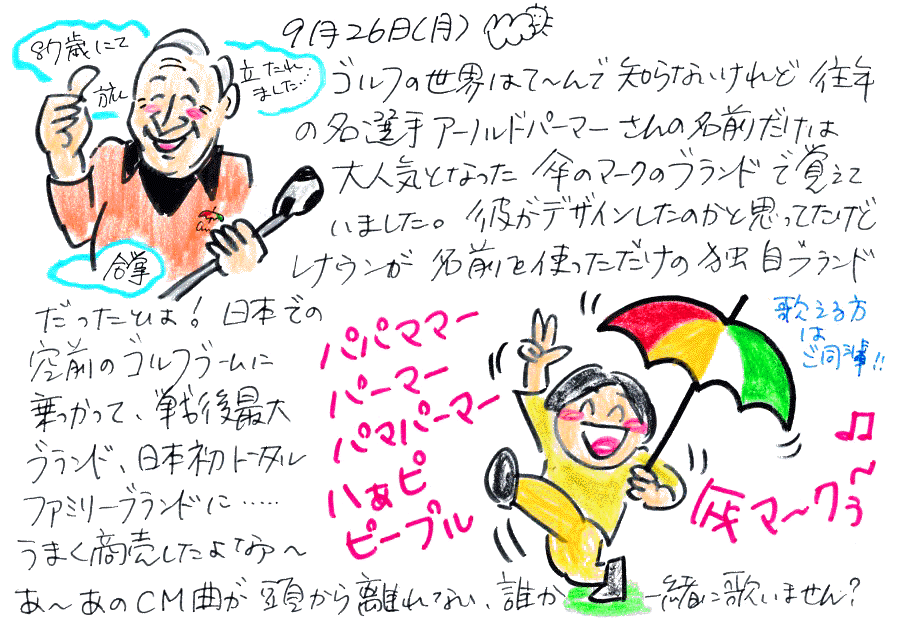 9月26日(月)
87歳にて
旅
立たれ
ました…
合掌
ゴルフの世界はて〜んで知らないけれど往年
の名選手アーノルドパーマーさんの名前だけは
大人気となった傘のマークのブランドで覚えて
いました。彼がデザインしたのかと思ってたけど
レナウンが名前を使っただけの独自ブランド
だったとは!日本での
空前のゴルフブームに
乗っかって、戦後最大
ブランド、日本初トータル
ファミリーブランドに……
うまく商売したよなァ〜
あ〜あのCM曲が頭から離れてない、誰か一緒に歌いません?
パパママー
パーマー
パマパーマー
ハぁピ
ピープル
傘マ〜クぅ〜
歌える方
は
ご同輩!!